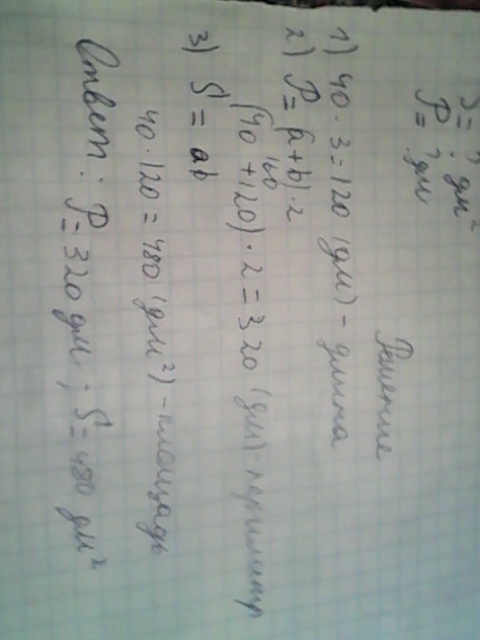 S = ? дм²
P = ? дм
Решение
1) 40 · 3 = 120 (дм) - длина
2) P = (a + b) · 2
160
(40 + 120) · 2 = 320 (дм) - периметр
3) S = ab
40 · 120 = 480 (дм²) - площадь
Ответ : P = 320 дм ; S = 480 дм²